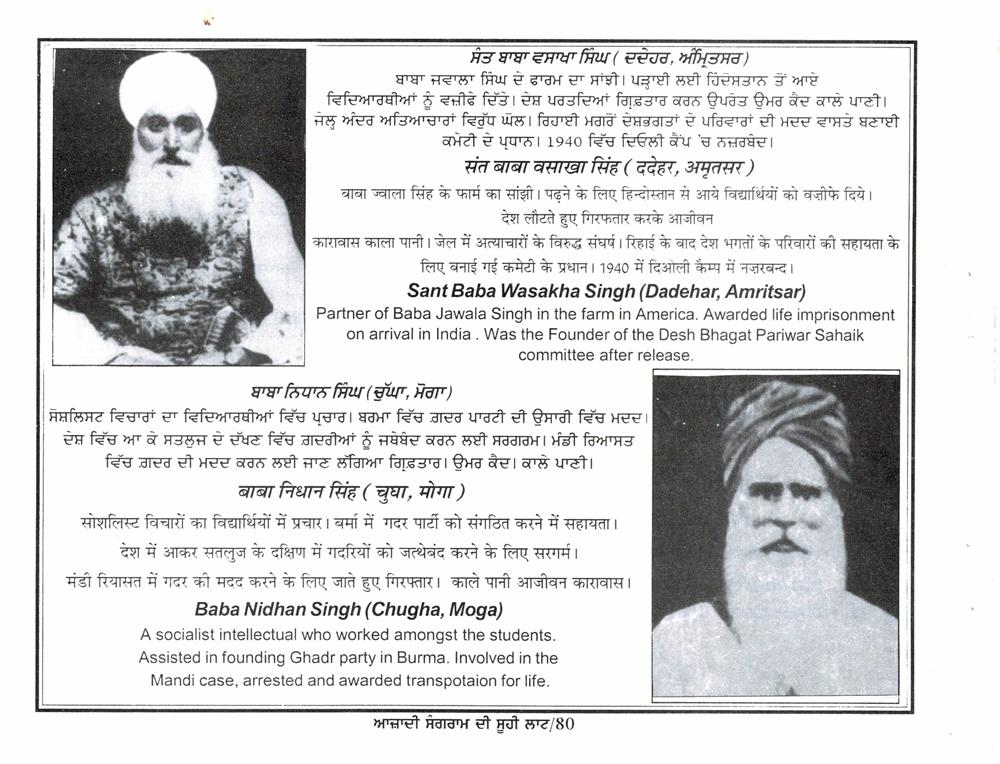 ਸੰਤ ਬਾਬਾ ਵਸਾਖਾ ਸਿੰਘ ( ਦਦੇਹਰ, ਅੰਮ੍ਰਿਤਸਰ )
ਬਾਬਾ ਜਵਾਲਾ ਸਿੰਘ ਦੇ ਫਾਰਮ ਦਾ ਸਾਂਝੀ। ਪੜ੍ਹਾਈ ਲਈ ਹਿੰਦੋਸਤਾਨ ਤੋਂ ਆਏ
ਵਿਦਿਆਰਥੀਆਂ ਨੂੰ ਵਜ਼ੀਫੇ ਦਿੱਤੇ। ਦੇਸ਼ ਪਰਤਦਿਆਂ ਗ੍ਰਿਫ਼ਤਾਰ ਕਰਨ ਉਪਰੰਤ ਉਮਰ ਕੈਦ ਕਾਲੇ ਪਾਣੀ।
ਜੇਲ੍ਹ ਅੰਦਰ ਅਤਿਆਚਾਰਾਂ ਵਿਰੁੱਧ ਘੋਲ। ਰਿਹਾਈ ਮਗਰੋਂ ਦੇਸ਼ਭਗਤਾਂ ਦੇ ਪਰਿਵਾਰਾਂ ਦੀ ਮਦਦ ਵਾਸਤੇ ਬਣਾਈ
ਕਮੇਟੀ ਦੇ ਪ੍ਰਧਾਨ। 1940 ਵਿੱਚ ਦਿਓਲੀ ਕੈਂਪ 'ਚ ਨਜ਼ਰਬੰਦ।
संत बाबा वसाखा सिंह ( ददेहर, अमृतसर )
बाबा ज्वाला सिंह के फार्म का सांझी। पढ़ने के लिए हिन्दोस्तान से आये विद्यार्थियों को वज़ीफे दिये।
देश लौटते हुए गिरफतार करके आजीवन
कारावास काला पानी। जेल में अत्याचारों के विरुद्ध संघर्ष। रिहाई के बाद देश भगतों के परिवारों की सहायता के
लिए बनाई गई कमेटी के प्रधान। 1940 में दिओली कैम्प में नज़रबन्द।
Sant Baba Wasakha Singh (Dadehar, Amritsar)
Partner of Baba Jawala Singh in the farm in America. Awarded life imprisonment
on arrival in India . Was the Founder of the Desh Bhagat Pariwar Sahaik
committee after release.
ਬਾਬਾ ਨਿਧਾਨ ਸਿੰਘ (ਚੁੱਘਾ, ਮੋਗਾ)
ਸੋਸ਼ਲਿਸਟ ਵਿਚਾਰਾਂ ਦਾ ਵਿਦਿਆਰਥੀਆਂ ਵਿੱਚ ਪ੍ਰਚਾਰ। ਬਰਮਾ ਵਿੱਚ ਗ਼ਦਰ ਪਾਰਟੀ ਦੀ ਉਸਾਰੀ ਵਿੱਚ ਮਦਦ।
ਦੇਸ਼ ਵਿੱਚ ਆ ਕੇ ਸਤਲੁਜ ਦੇ ਦੱਖਣ ਵਿੱਚ ਗ਼ਦਰੀਆਂ ਨੂੰ ਜਥੇਬੰਦ ਕਰਨ ਲਈ ਸਰਗਰਮ। ਮੰਡੀ ਰਿਆਸਤ
ਵਿੱਚ ਗ਼ਦਰ ਦੀ ਮਦਦ ਕਰਨ ਲਈ ਜਾਣ ਲੱਗਿਆ ਗ੍ਰਿਫ਼ਤਾਰ। ਉਮਰ ਕੈਦ। ਕਾਲੇ ਪਾਣੀ।
बाबा निधान सिंह ( चुघा, मोगा )
सोशलिस्ट विचारों का विद्यार्थियों में प्रचार। बर्मा में गदर पार्टी को संगठित करने में सहायता।
देश में आकर सतलुज के दक्षिण में गदरियों को जत्थेबंद करने के लिए सरगर्म।
मंडी रियासत में गदर की मदद करने के लिए जाते हुए गिरफ्तार। काले पानी आजीवन कारावास।
Baba Nidhan Singh (Chugha, Moga)
A socialist intellectual who worked amongst the students.
Assisted in founding Ghadr party in Burma. Involved in the
Mandi case, arrested and awarded transpotaion for life.
ਆਜ਼ਾਦੀ ਸੰਗਰਾਮ ਦੀ ਸੂਹੀ ਲਾਟ/80